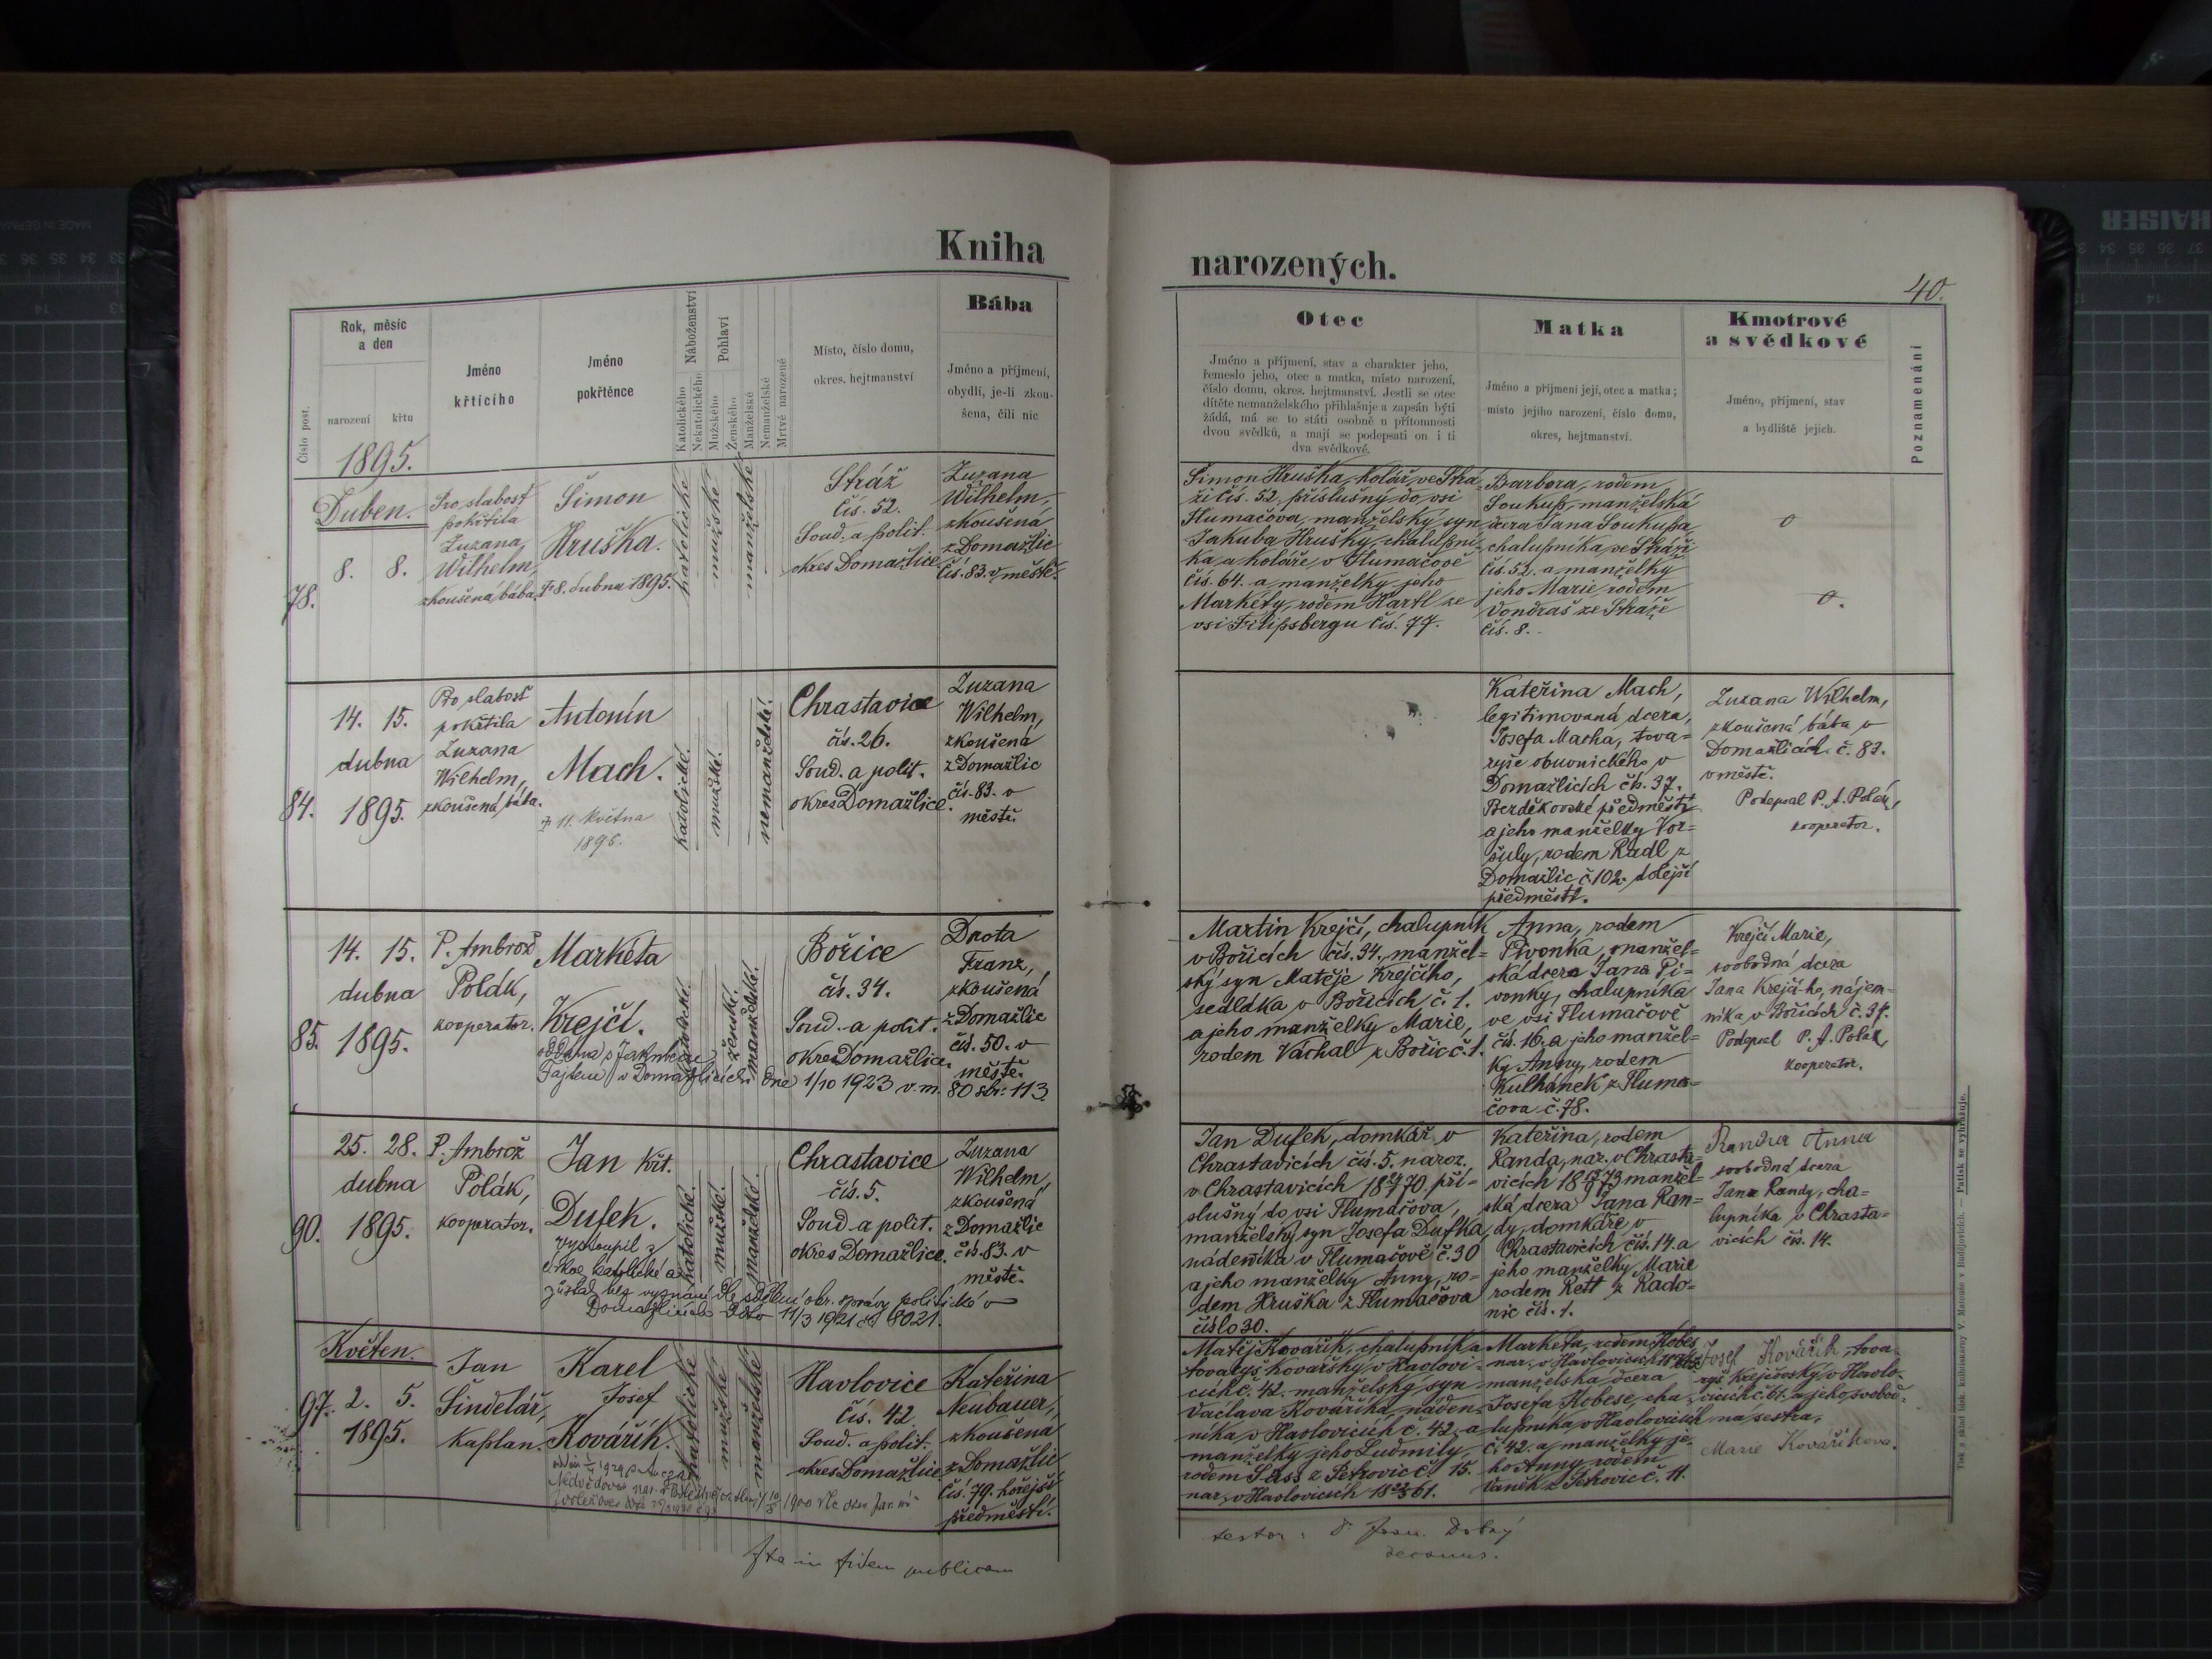 Kniha
narozených.
40.
Číslo post.
Rok, měsíc
a den
narození
křtu
Jméno
křtícího
Jméno
pokřtěnce
Náboženství
Katolického
Nekatolického
Pohlaví
Mužského
Ženského
Manželské
Nemanželské
Mrtvě narozené
Místo, číslo domu,
okres. hejtmanství
Bába
Jméno a příjmení,
obydlí, je-li zkou-
šena, čili nic
Otec
Jméno a příjmení, stav a charakter jeho,
řemeslo jeho, otec a matka, místo narození,
číslo domu, okres. hejtmanství. Jestli se otec
dítěte nemanželského přihlašuje a zapsán býti
žádá, má se to státi osobně u přítomnosti
dvou svědků, a mají se podepsati on i ti
dva svědkové.
Matka
Jméno a příjmení její, otec a matka;
místo jejího narození, číslo domu,
okres, hejtmanství.
Kmotrové
a svědkové
Jméno, příjmení, stav
a bydliště jejich.
Poznamenání
1895.
Duben.
78.
8. 8.
Pro slabosť
pokřtila
Zuzana
Wilhelm,
zkoušená bába.
Šimon
Hruška.
8. dubna 1895.
katolické
mužské
manželské
Stráž
čís. 52.
Soud. a polit.
okres Domažlice
Zuzana
Wilhelm,
zkoušená
z Domažlic
čís. 83. v městě.
Šimon Hruška, kolář ve Strá-
ži čís. 52. příslušný do vsi
Tlumačova, manželský syn
Jakuba Hrušky, chalupní-
ka a koláře v Tlumačově
čís. 64. a manželky jeho
Markéty, rodem Hartl ze
vsi Filipsbergu čís. 77.
Barbora, rodem
Soukup, manželská
dcera Jana Soukupa
chalupníka ve Stráži
čís. 52. a manželky
jeho Marie, rodem
Vondraš ze Stráže
čís. 8.
0
0.
84.
14. 15.
dubna
1895.
Pro slabosť
pokřtila
Zuzana
Wilhelm,
zkoušená bába.
Antonín
Mach.
11. května
1895.
katolické.
mužské.
nemanželské.
Chrastavice
čís. 26.
Soud. a polit.
okres Domažlice.
Zuzana
Wilhelm,
zkoušená
z Domažlic
čís. 83. v
městě.
Kateřina Mach,
legitimovaná dcera,
Josefa Macha, tova-
ryše obuvnického v
Domažlicích čís. 37.
Bezděkovské předměstí
a jeho manželky Vor-
šuly, rodem Radl z
Domažlic č. 102. dolejší
předměstí.
Zuzana Wilhelm,
zkoušená bába v
Domažlicích č. 83.
v městě.
Podepsal P. A. Polák,
kooperator.
85.
14. 15.
dubna
1895.
P. Ambrož
Polák,
kooperator.
Markéta
Krejčí.
oddána s Jakubem
Tajtlem v Domažlicích dne 1/10 1923 v. m. 80 str. 113
katolické.
ženské.
manželské.
Bořice
čís. 34.
Soud. a polit.
okres Domažlice.
Dorota
Franz,
zkoušená
z Domažlic
čís. 50. v
městě.
Martin Krejčí, chalupník
v Bořicích čís. 34., manžel-
ský syn Matěje Krejčího,
sedláka v Bořicích č. 1.
a jeho manželky Marie,
rodem Váchal z Bořic č. 1.
Anna, rodem
Pivonka, manžel-
ská dcera Jana Pi-
vonky, chalupníka
ve vsi Tlumačově
čís. 16. a jeho manžel-
ky Anny, rodem
Kulhánek z Tluma-
čova č. 78.
Krejčí Marie,
svobodná dcera
Jana Krejčího, nájem-
níka v Bořicích č. 34.
Podepsal P. A. Polák,
kooperator.
90.
25. 28.
dubna
1895.
P. Ambrož
Polák,
kooperator.
Jan Křt.
Dufek.
vystoupil z
církve katolické a
zůstal bez vyznání dle sdělení okr. správy politické v
Domažlicích dto 11/3 1921 čj 8021.
katolické.
mužské.
manželské.
Chrastavice
čís. 5.
Soud. a polit.
okres Domažlice.
Zuzana
Wilhelm,
zkoušená
z Domažlic
čís. 83. v
městě.
Jan Dufek, domkář v
Chrastavicích čís. 5. naroz.
v Chrastavicích 70. pří-
slušný do vsi Tlumačova,
manželský syn Josefa Dufka,
nádeníka v Tlumačově č. 30
a jeho manželky Anny, ro-
dem Hruška z Tlumačova
číslo 30.
Kateřina, rodem
Randa, nar. v Chrasta-
vicích 73 manžel-
ská dcera Jana Ran-
dy, domkáře v
Chrastavicích čís. 14. a
jeho manželky Marie
rodem Rett z Rado-
nic čís. 1.
Randa Anna
svobodná dcera
Jana Randy, cha-
lupníka v Chrasta-
vicích čís. 14.
Květen.
97.
2. 5.
1895.
Jan
Šindelář,
kaplan.
Karel
Josef
Kovářík.
katolické
mužské
manželské
Havlovice
čís. 42
Soud. a polit.
okres Domažlice
Kateřina
Neubauer,
zkoušená
z Domažlic
čís. 79. hořejší
předměstí.
Matěj Kovářík, chalupník a
tovaryš kovářský v Havlovi-
cích č. 42. manželský syn
Václava Kováříka, náden-
níka v Havlovicích č. 42. a
manželky jeho Ludmily
rodem z Petrovic č. 15.
nar. v Havlovicích 61.
Markéta, rodem Kobes
nar. v Havlovicích
manželská dcera
Josefa Kobese, cha-
lupníka v Havlovicích
č. 42. a manželky je-
ho Anny, rodem
Vaněk z Petrovic č. 11.
Josef Kovářík, tova-
ryš krejčovský v Havlo-
vicích č. 61. a jeho svobod-
ná sestra,
Marie Kováříkova.
Ita in fidem publicam
testor: P. Fran. Dobrý
decanus.